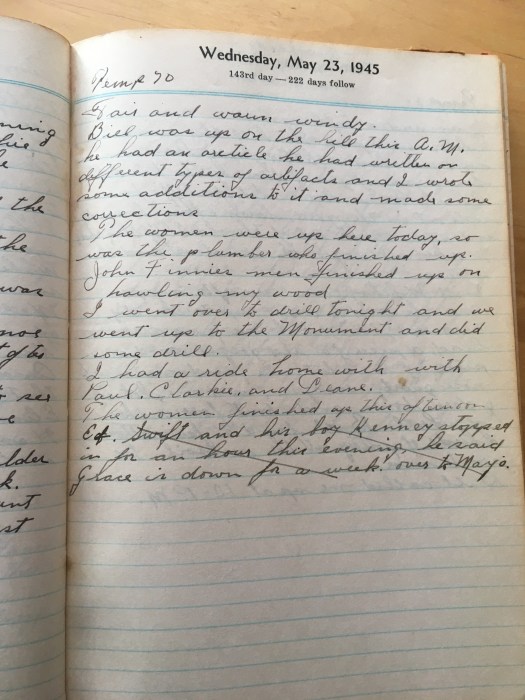 ning
the
the
was
ser
older
k.
unt
st
Wednesday, May 23, 1945
143rd day — 222 days follow
Temp 70
Fair and warm windy.
Bill was up on the hill this A.M.
he had an article he had written on
different types of artifacts and I wrote
some additions to it and made some
corrections
The women were up here today, so
was the plumber who finished up.
John Finnies men finished up on
howling my wood
I went over to drill tonight and we
went up to the Monument and did
some drill.
I had a ride home with with
Paul. Clarkie, and Deane.
The women finished up this afternoon
Ed. Swift and his boy Kenney stopped
in for an hour this evening, he said
Grace is down for a week over to Mayo.